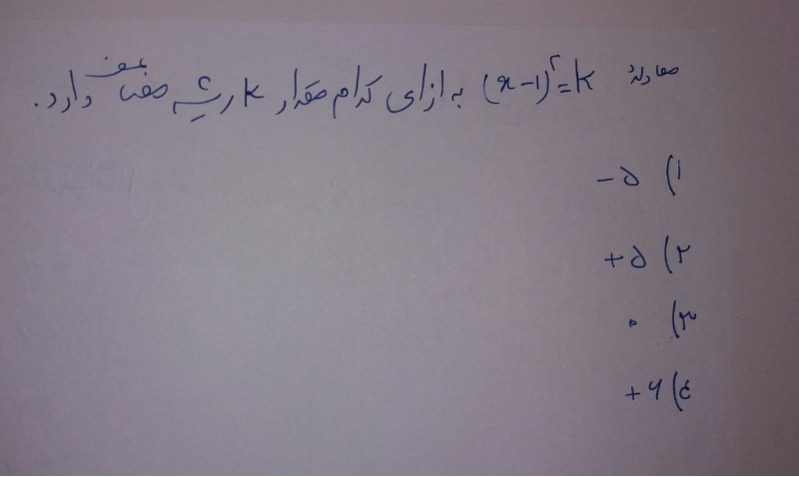 معادلهٔ (x-1)²=k به ازای کدام مقدار k ریشهٔ مضاعف دارد.
۱) -۵
۲) +۵
۳) ۰
۴) +۶